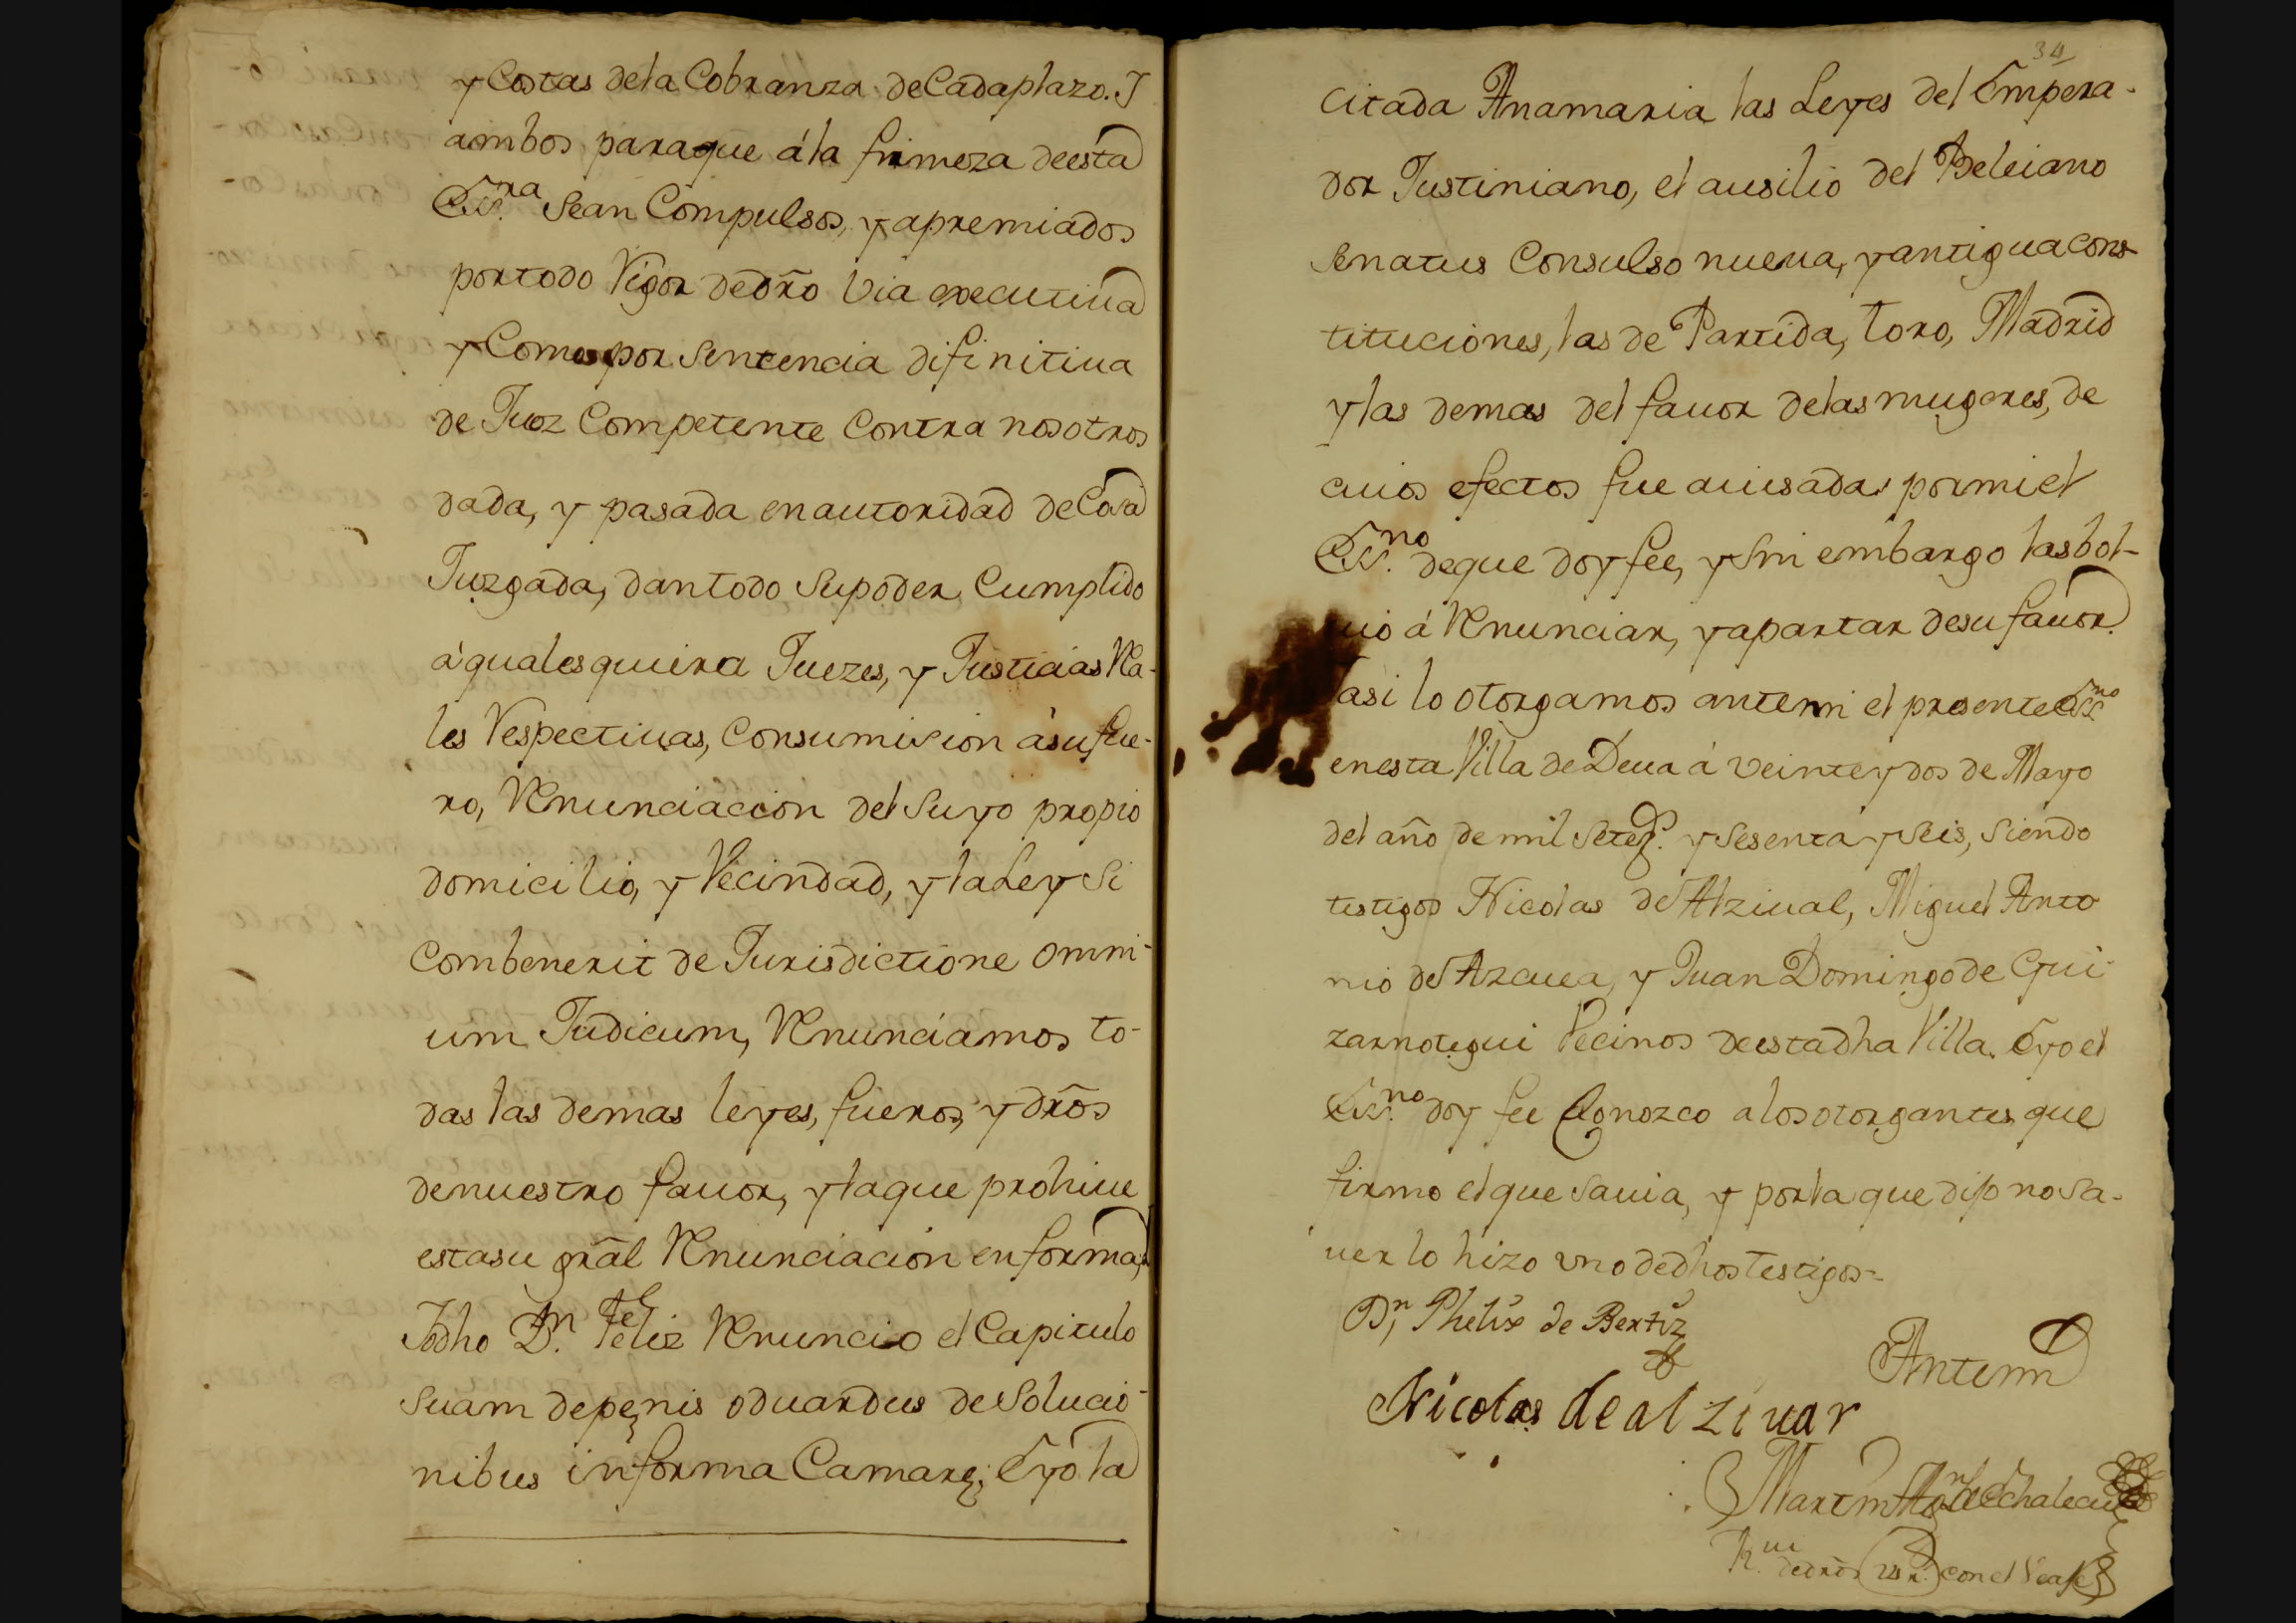 y Costas dela Cobranza de Cadaplazo. I
ambos paraque á la firmeza deesta
Ess.ra Sean Compulsos, y apremiados
portodo Vigor dedrõ Via executiua
y Como por Sentencia difinitiua
de Juez Competente Contra nosotros
dada, y pasada enautoridad de Cosa
Juzgada, dantodo Supoder Cumplido
á qualesquiera Juezes, y Justicias Rea-
les Respectiuas, Consumision ásu fue-
ro, Renunciacion del Suyo propio
domicilio, y Vecindad, y la Ley Si
Combenerit de Jurisdictione omni-
um Judicum, Renunciamos to-
das las demas leyes, fueros, y drõs
denuestro fauor, y laque prohiue
estasu grãl Renunciacion enforma,
Idho D.n Feliz Renuncio el Capitulo
Suam depenis oduardus de Solucio-
nibus informa Camare; Eyo la
34
Citada Anamaria las Leyes del Empera-
dor Justiniano, el ausilio del Beleiano
Senatus Consulso nueua, y antigua cons-
tituciones, las de Partida, toro, Madrid
y las demas del fauor delas mugeres, de
cuios efectos fue auisada pormi el
Ess.no deque doy fee, y Sin embargo las bol-
uio á Renunciar, y apartar desu fauor.
asi lo otorgamos antemi el presente Ess.no
enesta Villa de Deua á veinteydos de Mayo
del año de mil Setez.s y Sesenta y Seis, Siendo
testigos Nicolas de Alziual, Miguel Anto
nio de Azcuea, y Juan Domingo de Gui-
zarnotegui Vecinos deestadha Villa. Eyo el
Ess.no doy fee Conozco alos otorgantes que
firmo el que Sauia, y porla que dijo no Sa-
uer lo hizo vno dedhos testigos-
D.n Phelix de Bertiz
Antemi
Nicolas de alziuar
Martin de Echalecu
R.ui dedrõs con el Vease